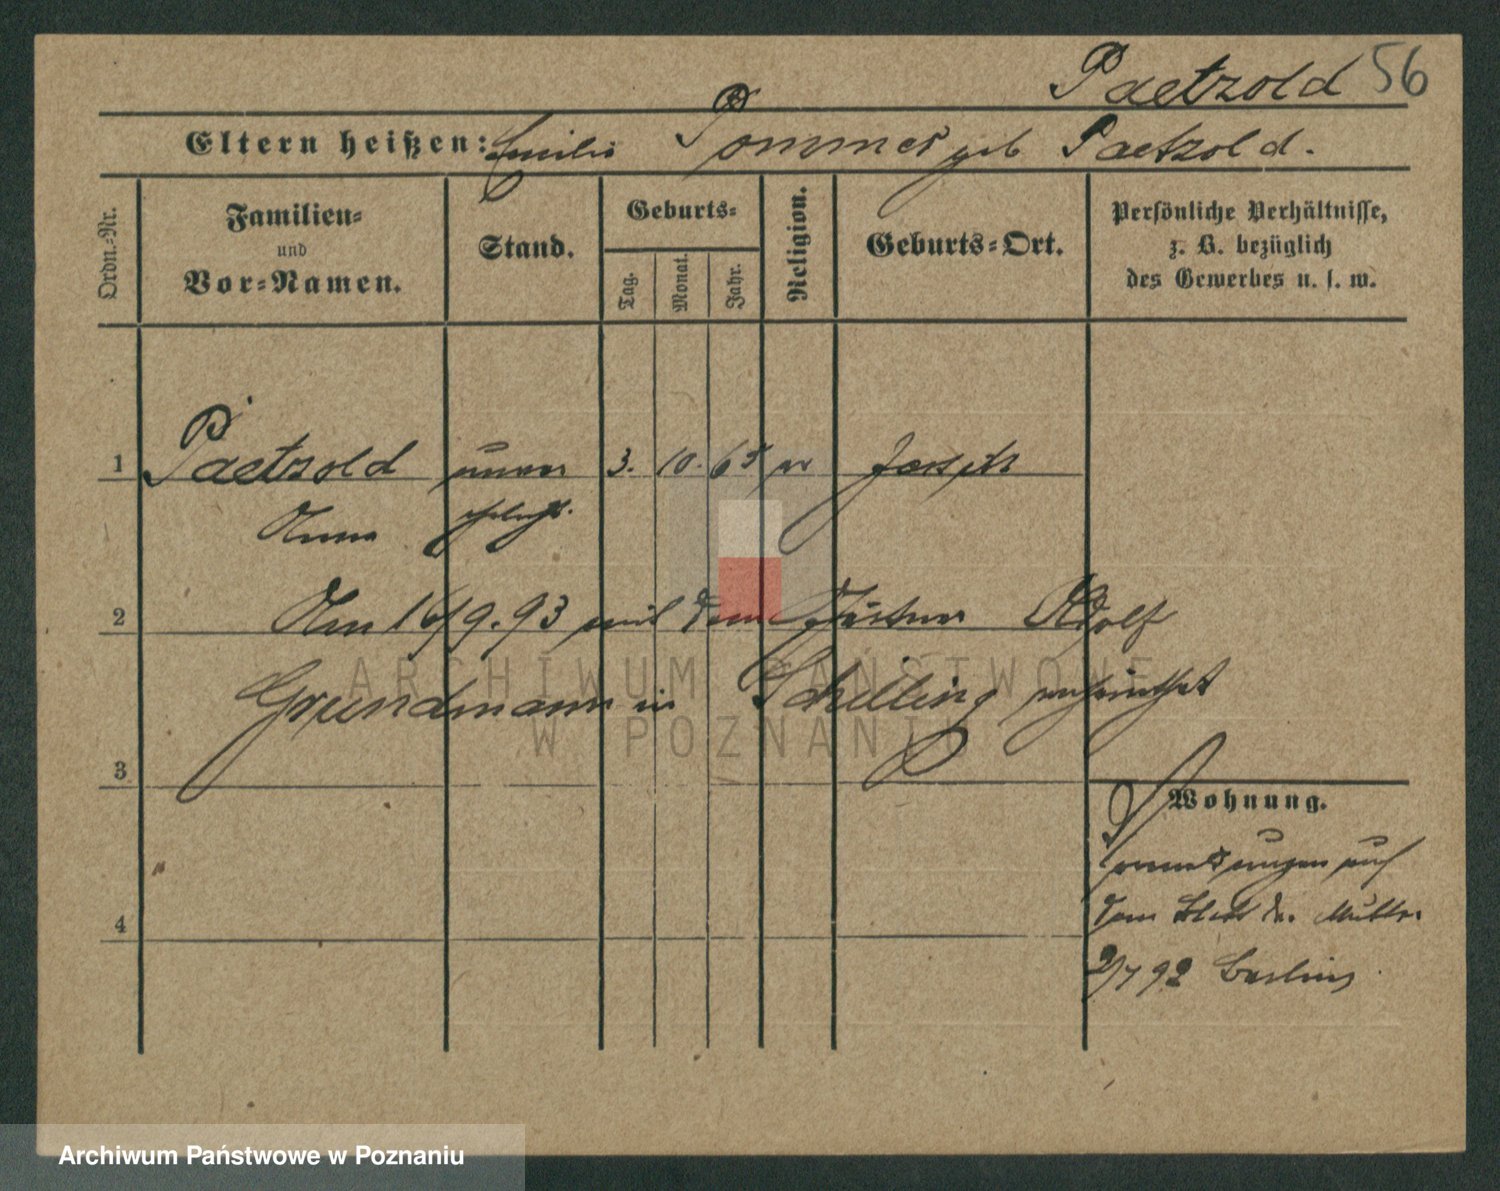 Paetzold 56
Eltern heißen: Emilie Pommer geb Paetzold.
Ordn.-Nr.
Familien-
und
Vor-Namen.
Stand.
Geburts-
Tag.
Monat.
Jahr.
Religion.
Geburts-Ort.
Persönliche Verhältnisse,
z. B. bezüglich
des Gewerbes u. s. w.
1 Paetzold unver 3. 10. 65 ev
Anna ehelicht.
2 Am 16/9.93 mit dem Gärtner Adolf
Grundmann in Schilling verheirathet
3
Wohnung.
auf
4 dem Blatt der Mutter
2/7 92 Berlin
ARCHIWUM PAŃSTWOWE
W POZNANIU
Archiwum Państwowe w Poznaniu